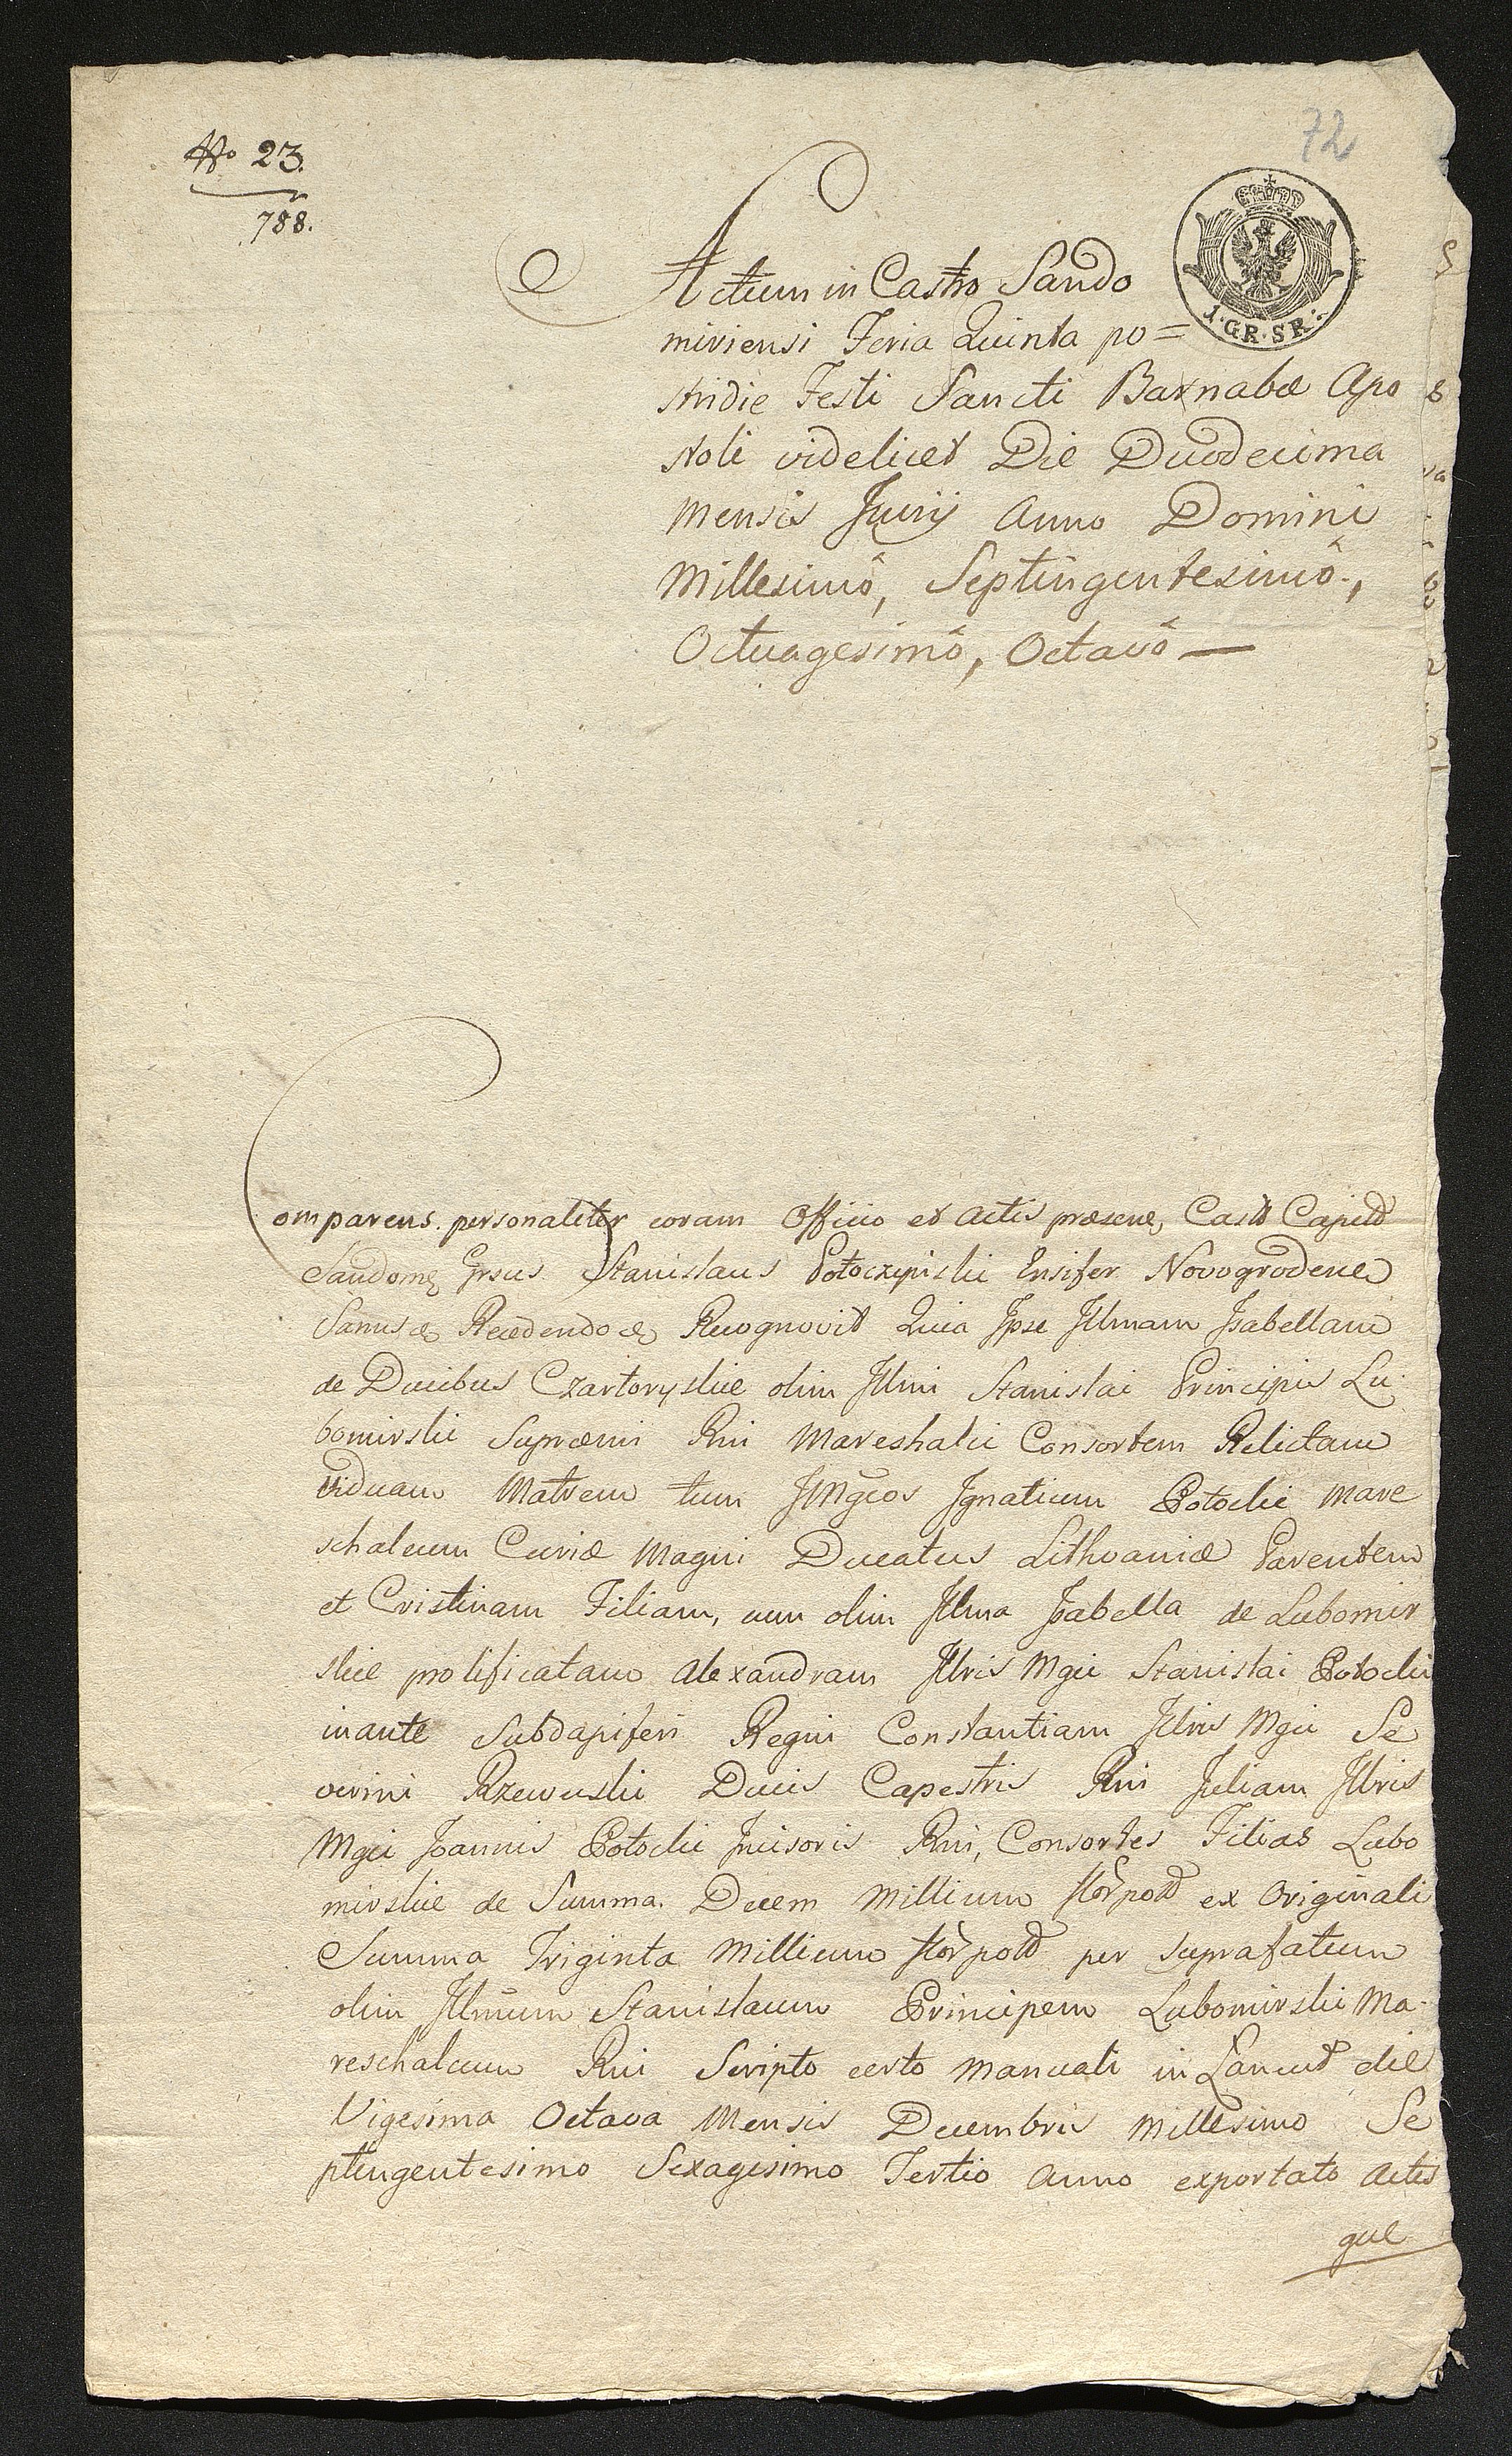 No 23.
788.
72
1·GR·SR·
Actum in Castro Sando
miriensi Feria Quinta po=
stridie Festi Sancti Barnabæ Apo
stoli videlicet Die Duodecima
mensis Junij Anno Domini
Millesimô, Septingentesimô,
Octuagesimô, Octavô —
Comparens personaliter coram Officio et Actis præsene, Castr Capitl
Sandome Grsus Stanislaus Potoczyński Ensifer Novogrodene
Sanus & Recedendo & Recognovit Quia Ipse Illmam Isabellam
de Ducibus Czartoryskie olim Illmi Stanislai Principis Lu
bomirskii Supræmi Rni Mareshalci Consortem Relictam
viduam Matrem tum IlMgcos Ignatium Potocki Mare
schalcum Curiæ Magni Ducatus Lithvaniæ Parentem
et Cristinam Filiam, cum olim Illma Isabella de Lubomir
skie prolificatam Alexandram Illris Mgci Stanislai Potocki
inante Subdapiferi Regni Constantiam Illris Mgci Se
verini Rzewuski Ducis Capestris Rni Juliam Illris
Mgci Joannis Potocki Incisoris Rni, Consortes Filias Lubo
mirskie de Summa Decem Millium flor pold ex Originali
Summa Triginta Millium flor pold per suprafatum
olim Illmum Stanislaum Principem Lubomirski Ma-
reschalcum Rni Scripto certo manuali in Lancut die
Vigesima Octava Mensis Decembris Millesimo Se
ptingentesimo Sexagesimo Tertio Anno exportato Actis
que